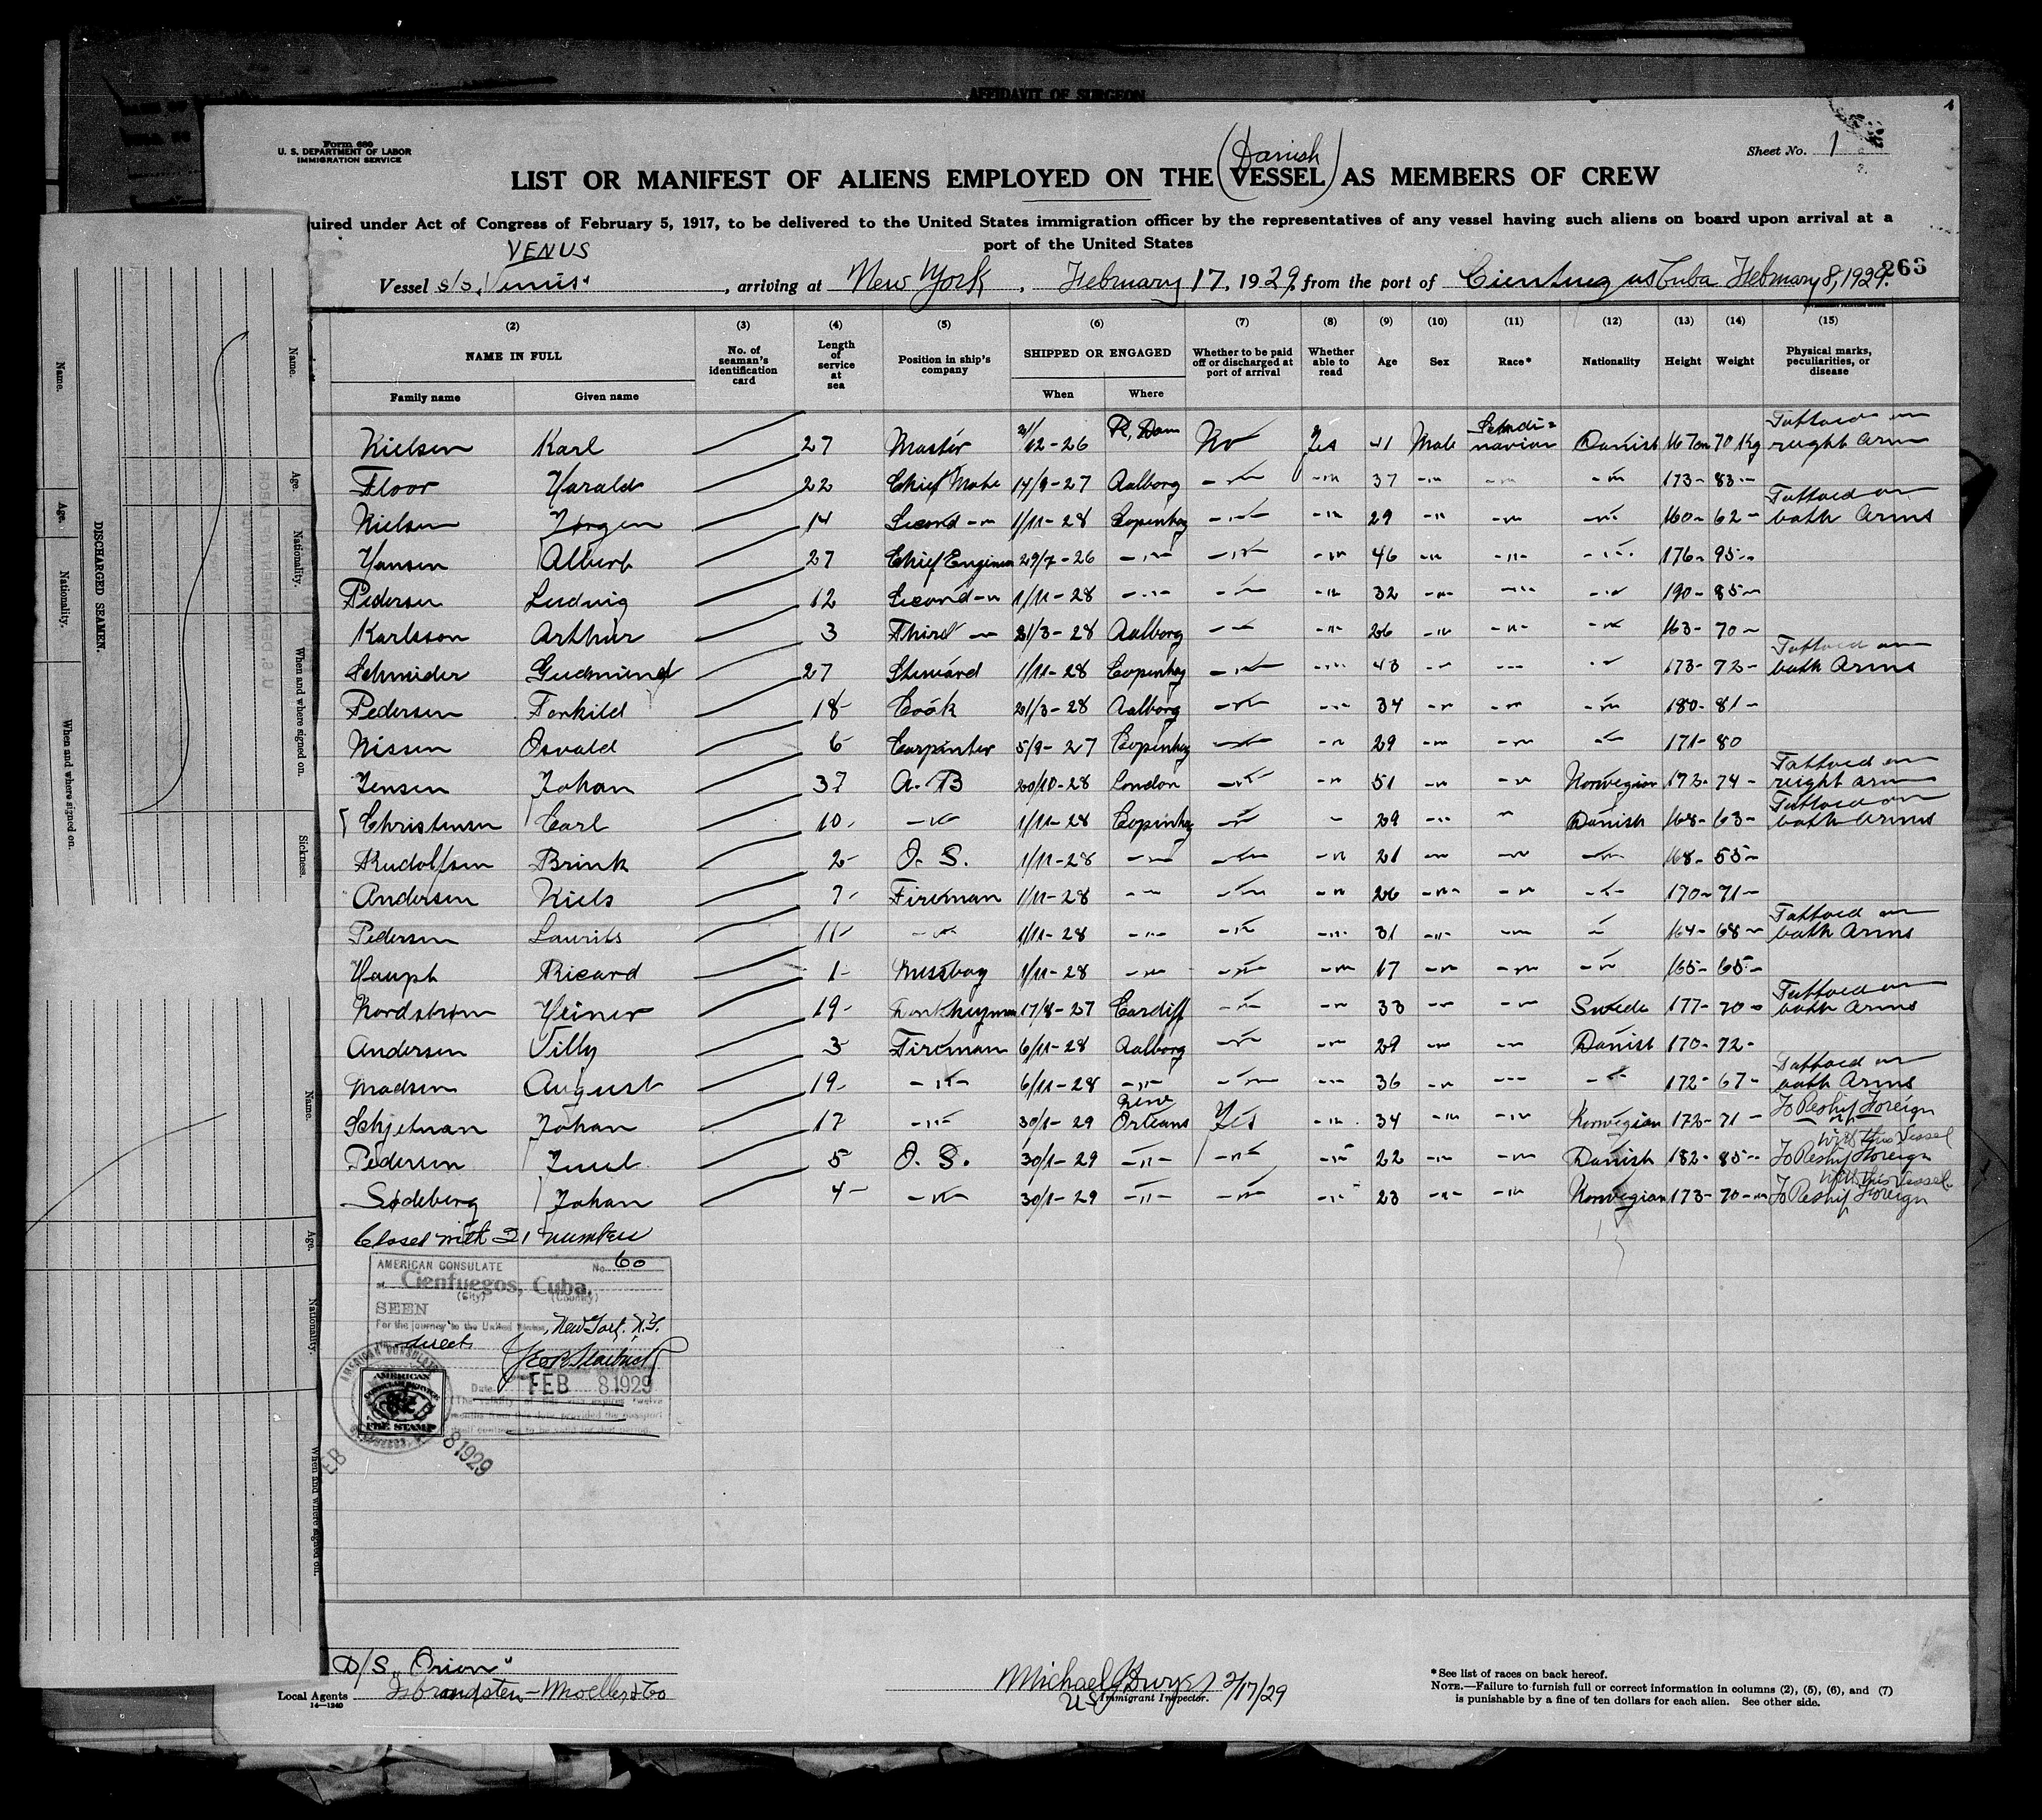 AFFIDAVIT OF SURGEON
Form 680
U. S. DEPARTMENT OF LABOR
IMMIGRATION SERVICE
Sheet No. 1
(Danish)
LIST OR MANIFEST OF ALIENS EMPLOYED ON THE VESSEL AS MEMBERS OF CREW
uired under Act of Congress of February 5, 1917, to be delivered to the United States immigration officer by the representatives of any vessel having such aliens on board upon arrival at a
port of the United States
VENUS
263
Vessel s/s. Venus, arriving at New York, February 17, 1929, from the port of Cienfuegos Cuba February 8, 1929.
(2) (3) (4) (5) (6) (7) (8) (9) (10) (11) (12) (13) (14) (15)
NAME IN FULL No. of seaman's identification card Length of service at sea Position in ship's company SHIPPED OR ENGAGED Whether to be paid off or discharged at port of arrival Whether able to read Age Sex Race* Nationality Height Weight Physical marks, peculiarities, or disease
Family name Given name When Where
Nielsen Karl 27 Master 21/12-26 R, Dam No Yes 41 Male Scandinavian Danish 167cm 70 Kg Tattoed on right arm
Floor Harald 22 Chief Mate 14/9-27 Aalborg -"- -"- 37 -"- -"- -"- 173- 83-
Nielsen Jørgen 14 Second -"- 1/11-28 Copenhag -"- -"- 29 -"- -"- -"- 160- 62- Tattoed on both Arms
Hansen Albert 27 Chief Engineer 29/7-26 -"- -"- -"- 46 -"- -"- -"- 176- 95-
Pedersen Ludvig 12 Second -"- 1/11-28 -"- -"- -"- 32 -"- -"- -"- 190- 85-
Karlsson Arthur 3 Third -"- 21/3-28 Aalborg -"- -"- 26 -"- -"- -"- 163- 70-
Schmider Gudmund 27 Steward 1/11-28 Copenhag -"- -"- 43 -"- -"- -"- 173- 72- Tattoed on both Arms
Pedersen Torkild 18 Cook 21/3-28 Aalborg -"- -"- 34 -"- -"- -"- 180- 81-
Nissen Osvald 6 Carpenter 5/9-27 Copenhag -"- -"- 29 -"- -"- -"- 171- 80
Jensen Johan 37 A. B 20/10-28 London -"- -"- 51 -"- -"- Norwegian 173- 74- Tattoed on right arm
Christensen Carl 10 -"- 1/11-28 Copenhag -"- -"- 29 -"- -"- Danish 168- 63- Tattoed on both Arms
Rudolfsen Brink 2 O. S. 1/11-28 -"- -"- -"- 21 -"- -"- -"- 168- 55-
Andersen Niels 7 Fireman 1/11-28 -"- -"- -"- 26 -"- -"- -"- 170- 71-
Pedersen Laurits 11 -"- 1/11-28 -"- -"- -"- 31 -"- -"- -"- 164- 68- Tattoed on both Arms
Hauph Ricard 1 Messboy 1/11-28 -"- -"- -"- 17 -"- -"- -"- 165- 65-
Nordstrøm Heiner 19 Donkheyman 17/8-27 Cardiff -"- -"- 33 -"- -"- Swede 177- 70- Tattoed on both Arms
Andersen Villy 3 Fireman 6/11-28 Aalborg -"- -"- 29 -"- -"- Danish 170- 72-
Madsen August 19 -"- 6/11-28 -"- -"- -"- 36 -"- -"- -"- 172- 67- Tattoed on both Arms
Schjetnan Johan 17 -"- 30/1-29 New Orleans Yes -"- 34 -"- -"- Norwegian 172- 71- To Reship Foreign
Pedersen Juul 5 O. S. 30/1-29 -"- -"- -"- 22 -"- -"- Danish 182- 85- with this Vessel To Reship Foreign
Sødeberg Johan 4 -"- 30/1-29 -"- -"- -"- 23 -"- -"- Norwegian 173- 70- with this Vessel To Reship Foreign
Closed with 21 numbers
AMERICAN CONSULATE No. 60
at Cienfuegos, Cuba.
(City) (Country)
SEEN
For the journey to the United States, New York. N.Y.
direct
Date FEB 8 1929
AMERICAN CONSULAR SERVICE
FEE STAMP
8 1929
D/S "Orion"
Local Agents Isbrandtsen-Moeller & Co
14—1240
Michael 2/17/29
US Immigrant Inspector.
*See list of races on back hereof.
NOTE.—Failure to furnish full or correct information in columns (2), (5), (6), and (7)
is punishable by a fine of ten dollars for each alien. See other side.
DISCHARGED SEAMEN.
Name.
Age.
Nationality.
When and where signed on.
Name.
Age.
Nationality.
When and where signed on.
Sickness.
Name.
Age.
Nationality.
When and where signed on.
U. S. DEPARTMENT OF LABOR